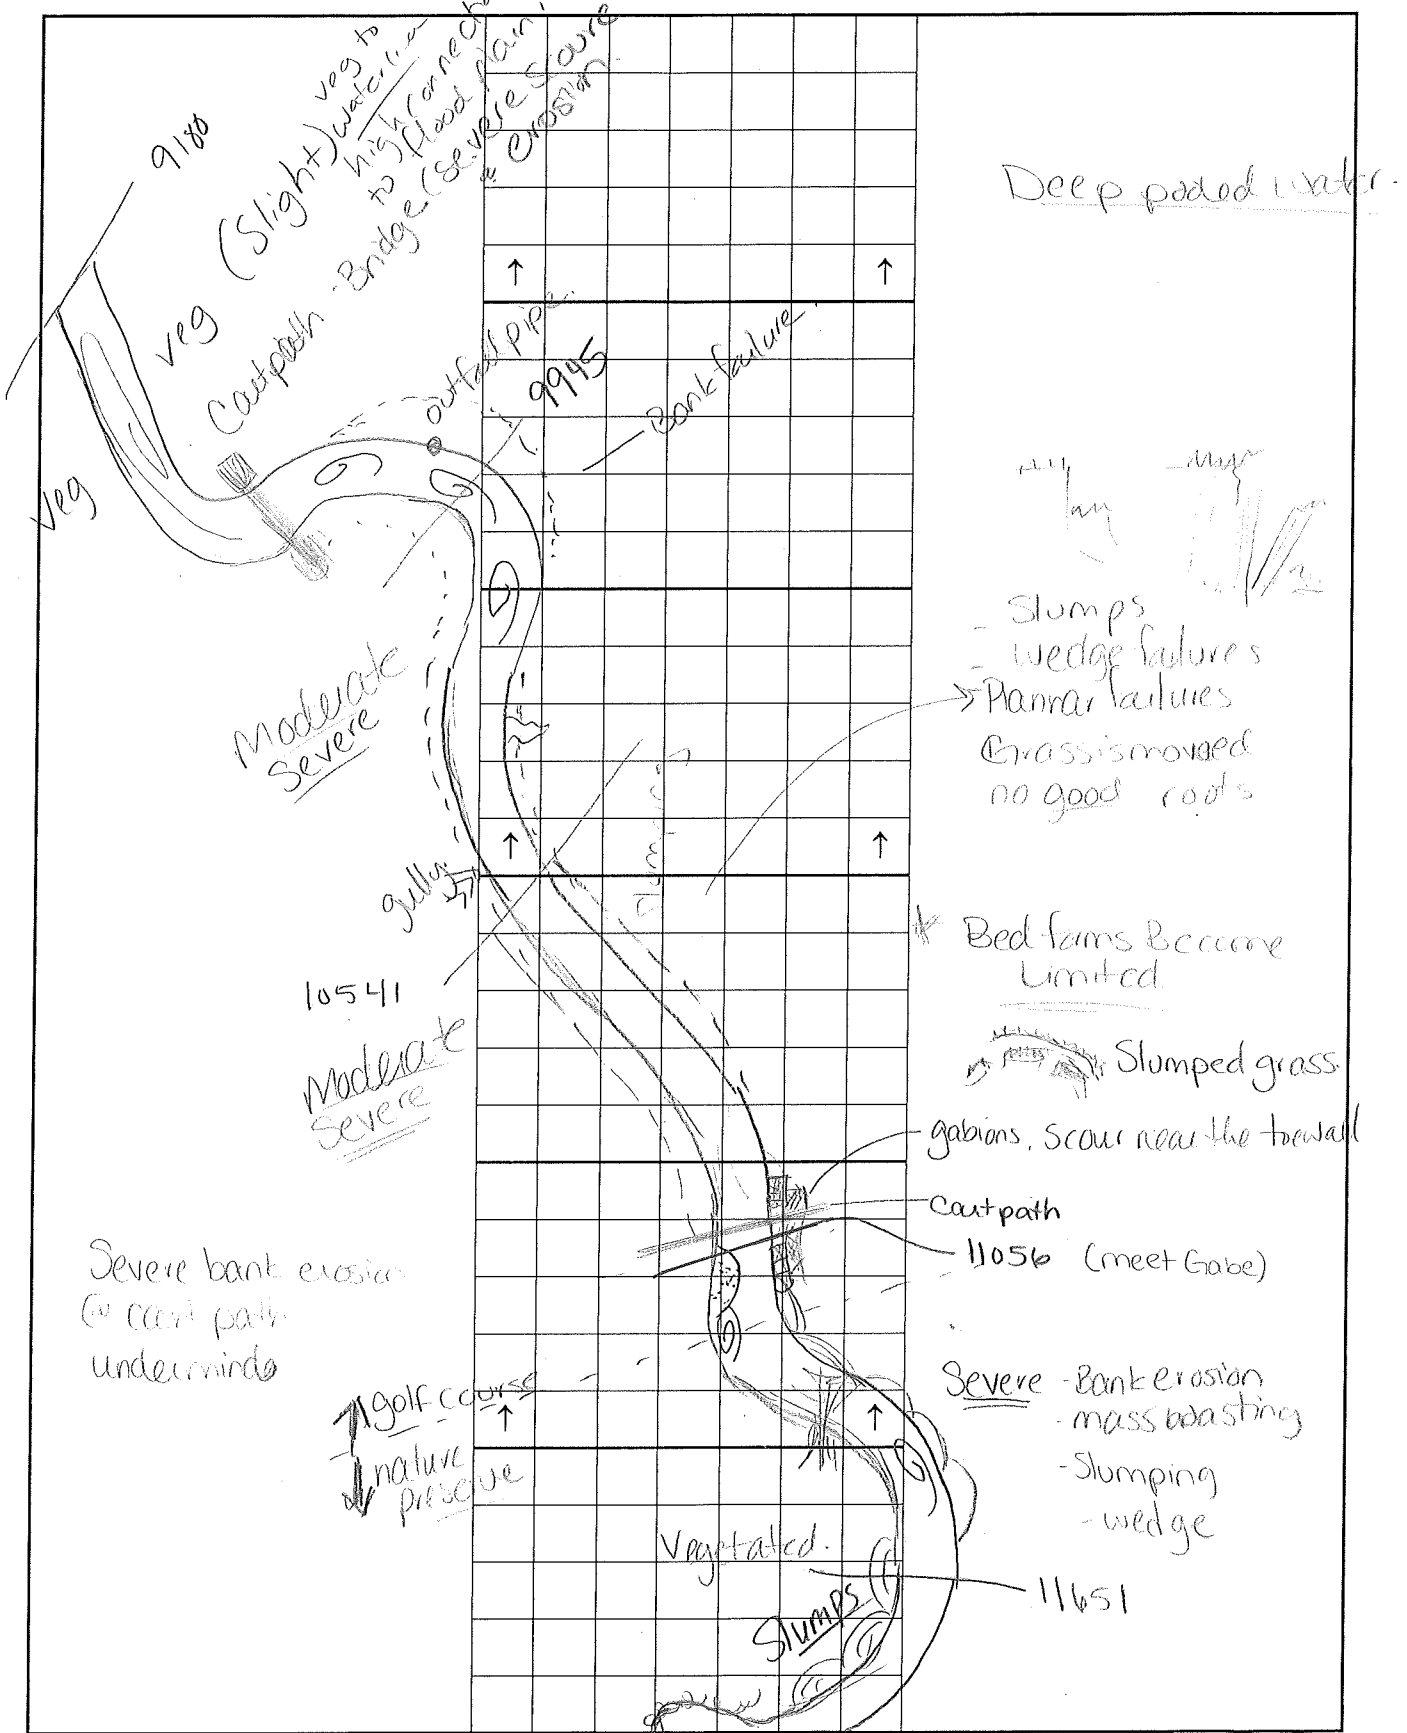 veg to
waterline
high connect
to flood plain
(Severe Scour
& erosion.
9180
veg (Slight)
Cartpath - Bridge
veg
outfall pipe.
9945
Bank failure.
Deep pooled water.
- Slumps
- wedge failures
Plannar failures
Grass is mowed
no good roots
Moderate
Severe
Slumping
gully
10541
Moderate
Severe
* Bed forms Become
Limited
Slumped grass.
gabions, scour near the toewall
Cartpath
11056 (meet Gabe)
Severe bank erosion
@ cart path
undermind
↑ golf course
↓ nature
preserve
Severe - Bank erosion
- mass wasting
- Slumping
- wedge
Vegetated.
Slumps
11651